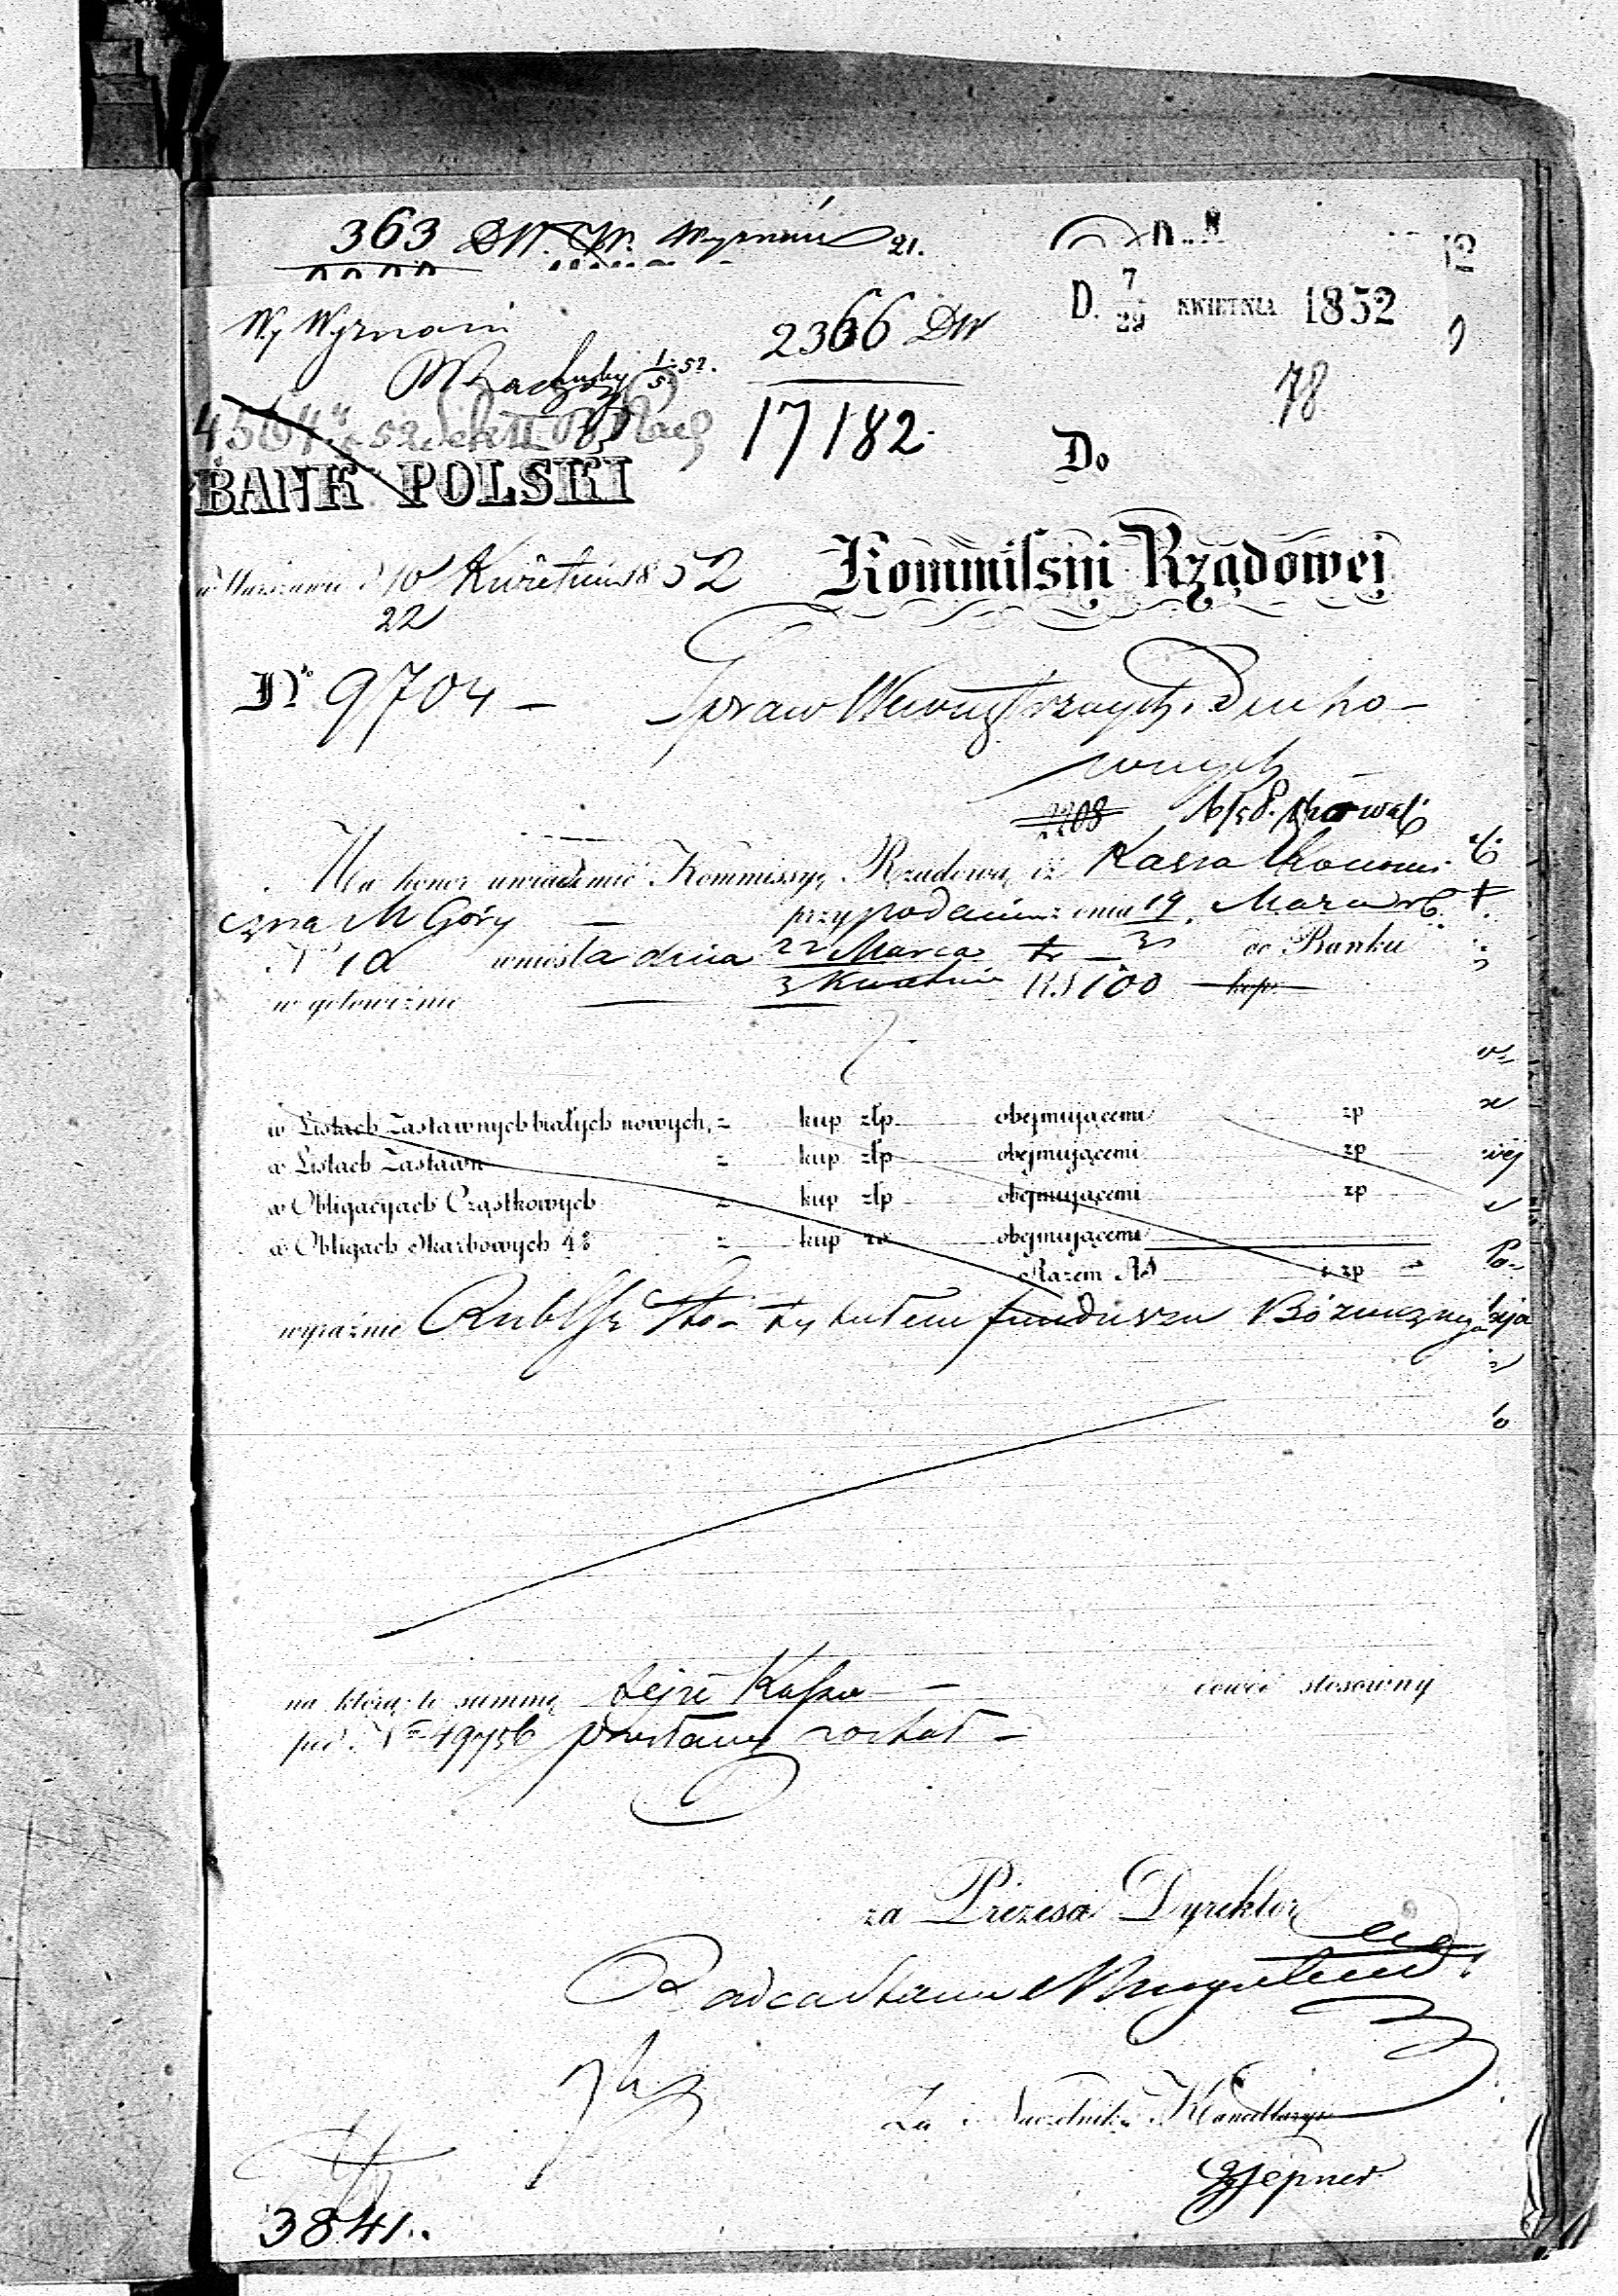 363 DW. Wyznań 21.
D. 7/29 KWIETNIA 1852
Wy Wyznań
2366 DW
78
17182
Do
BANK POLSKI
Kommissyi Rządowej
w Warszawie d 10/22 Kwietnia 1852
No 9704 —
Spraw Wewnętrznych i Ducho-
wnych
2208
Ma honor uwiadomić Kommissyę Rządową iż Kassa Ekonomi
czna M Góry — przy podaniu z dnia 19 Marca r b.
N 10 wniosła dnia 22 Marca / 3 Kwietnia t r do Banku
w gotowiźnie — RS 100 kop.
w Listach Zastawnych białych nowych, z kup złp obejmującemi zp
w Listach Zastawn z kup złp obejmującemi zp
w Obligacyjach Cząstkowych z kup złp obejmującemi zp
w Obligach Skarbowych 4% z kup obejmującemi
Razem RS i zp
wyraźnie Rubli sr sto - tytułem funduszu Bóżniczneg
na którą to summę tejże Kassie — dowód stosowny
pod Nr 49756 przesłany został —
za Prezesa Dyrektor
Radca Stanu
Za Naczelnika Kancellaryi
Jepner
3841.